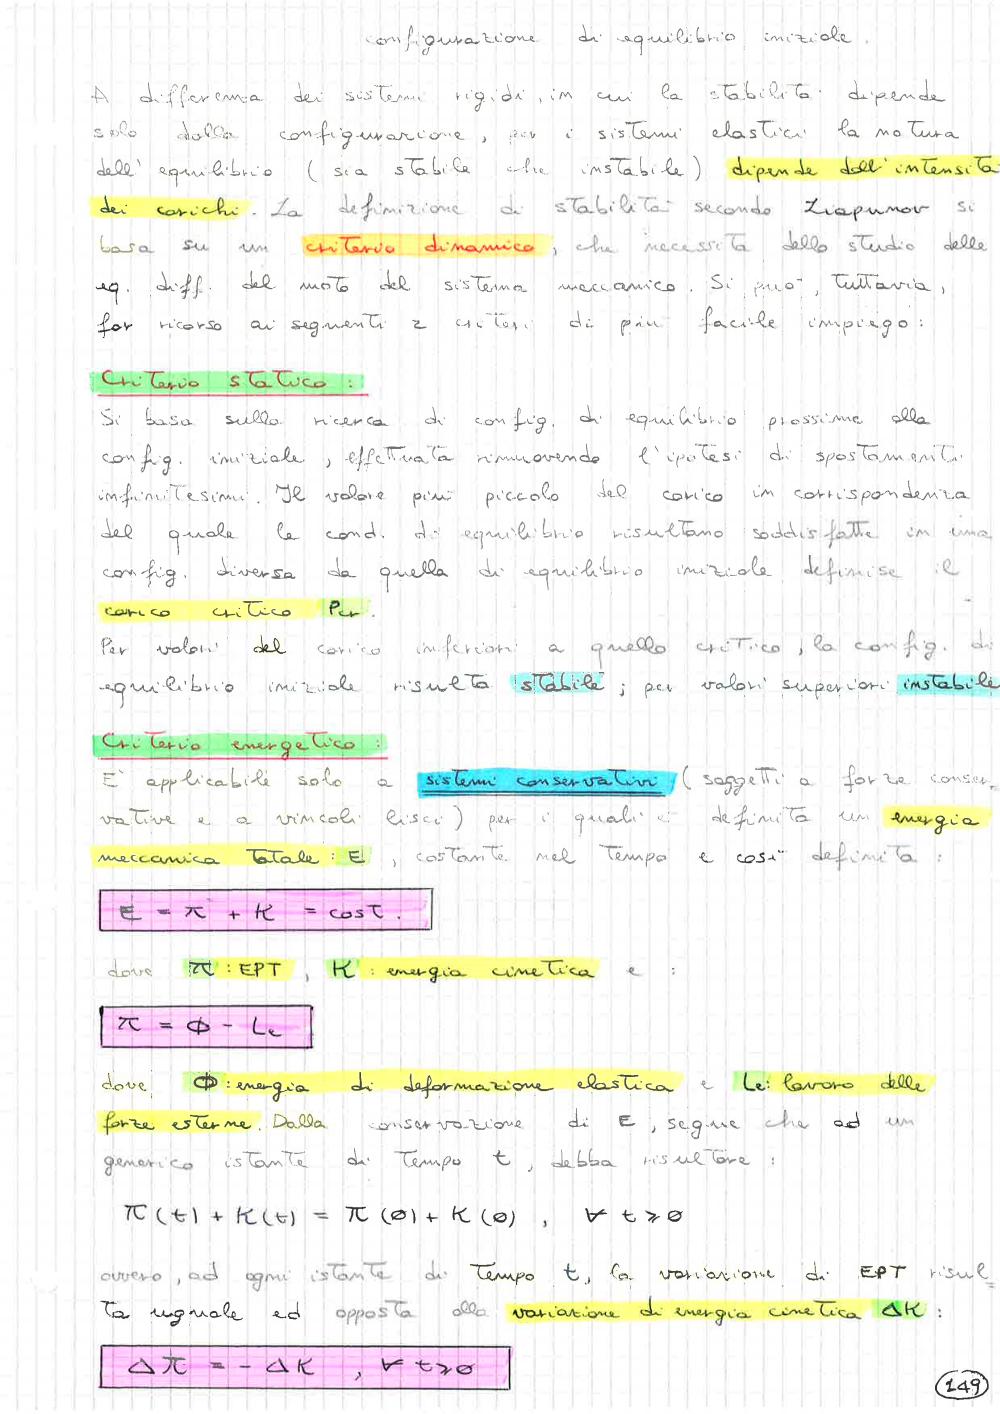 configurazione di equilibrio iniziale.
A differenza dei sistemi rigidi, in cui la stabilità dipende
solo dalla configurazione, per i sistemi elastici la natura
dell'equilibrio (sia stabile che instabile) dipende dall'intensità
dei carichi. La definizione di stabilità secondo Liapunov si
basa su un criterio dinamico, che necessita dello studio delle
eq. diff. del moto del sistema meccanico. Si può, tuttavia,
far ricorso ai seguenti 2 criteri di più facile impiego:
Criterio statico:
Si basa sulla ricerca di config. di equilibrio prossime alla
config. iniziale, effettuata rimuovendo l'ipotesi di spostamenti
infinitesimi. Il valore più piccolo del carico in corrispondenza
del quale le cond. di equilibrio risultano soddisfatte in una
config. diversa da quella di equilibrio iniziale definise il
carico critico Pcr.
Per valori del carico inferiori a quello critico, la config. di
equilibrio iniziale risulta stabile; per valori superiori instabile
Criterio energetico:
E' applicabile solo a sistemi conservativi (soggetti a forze conser-
vative e a vincoli lisci) per i quali è definita un energia
meccanica totale: E, costante nel tempo e così definita:
E = π + K = cost.
dove π: EPT, K: energia cinetica e:
π = Φ - Le
dove Φ: energia di deformazione elastica e Le: lavoro delle
forze esterne. Dalla conservazione di E, segue che ad un
generico istante di tempo t, debba risultare:
π(t) + K(t) = π(0) + K(0), ∀ t ≥ 0
ovvero, ad ogni istante di tempo t, la variazione di EPT risul-
ta uguale ed opposta alla variazione di energia cinetica ΔK:
Δπ = - ΔK, ∀ t ≥ 0
149